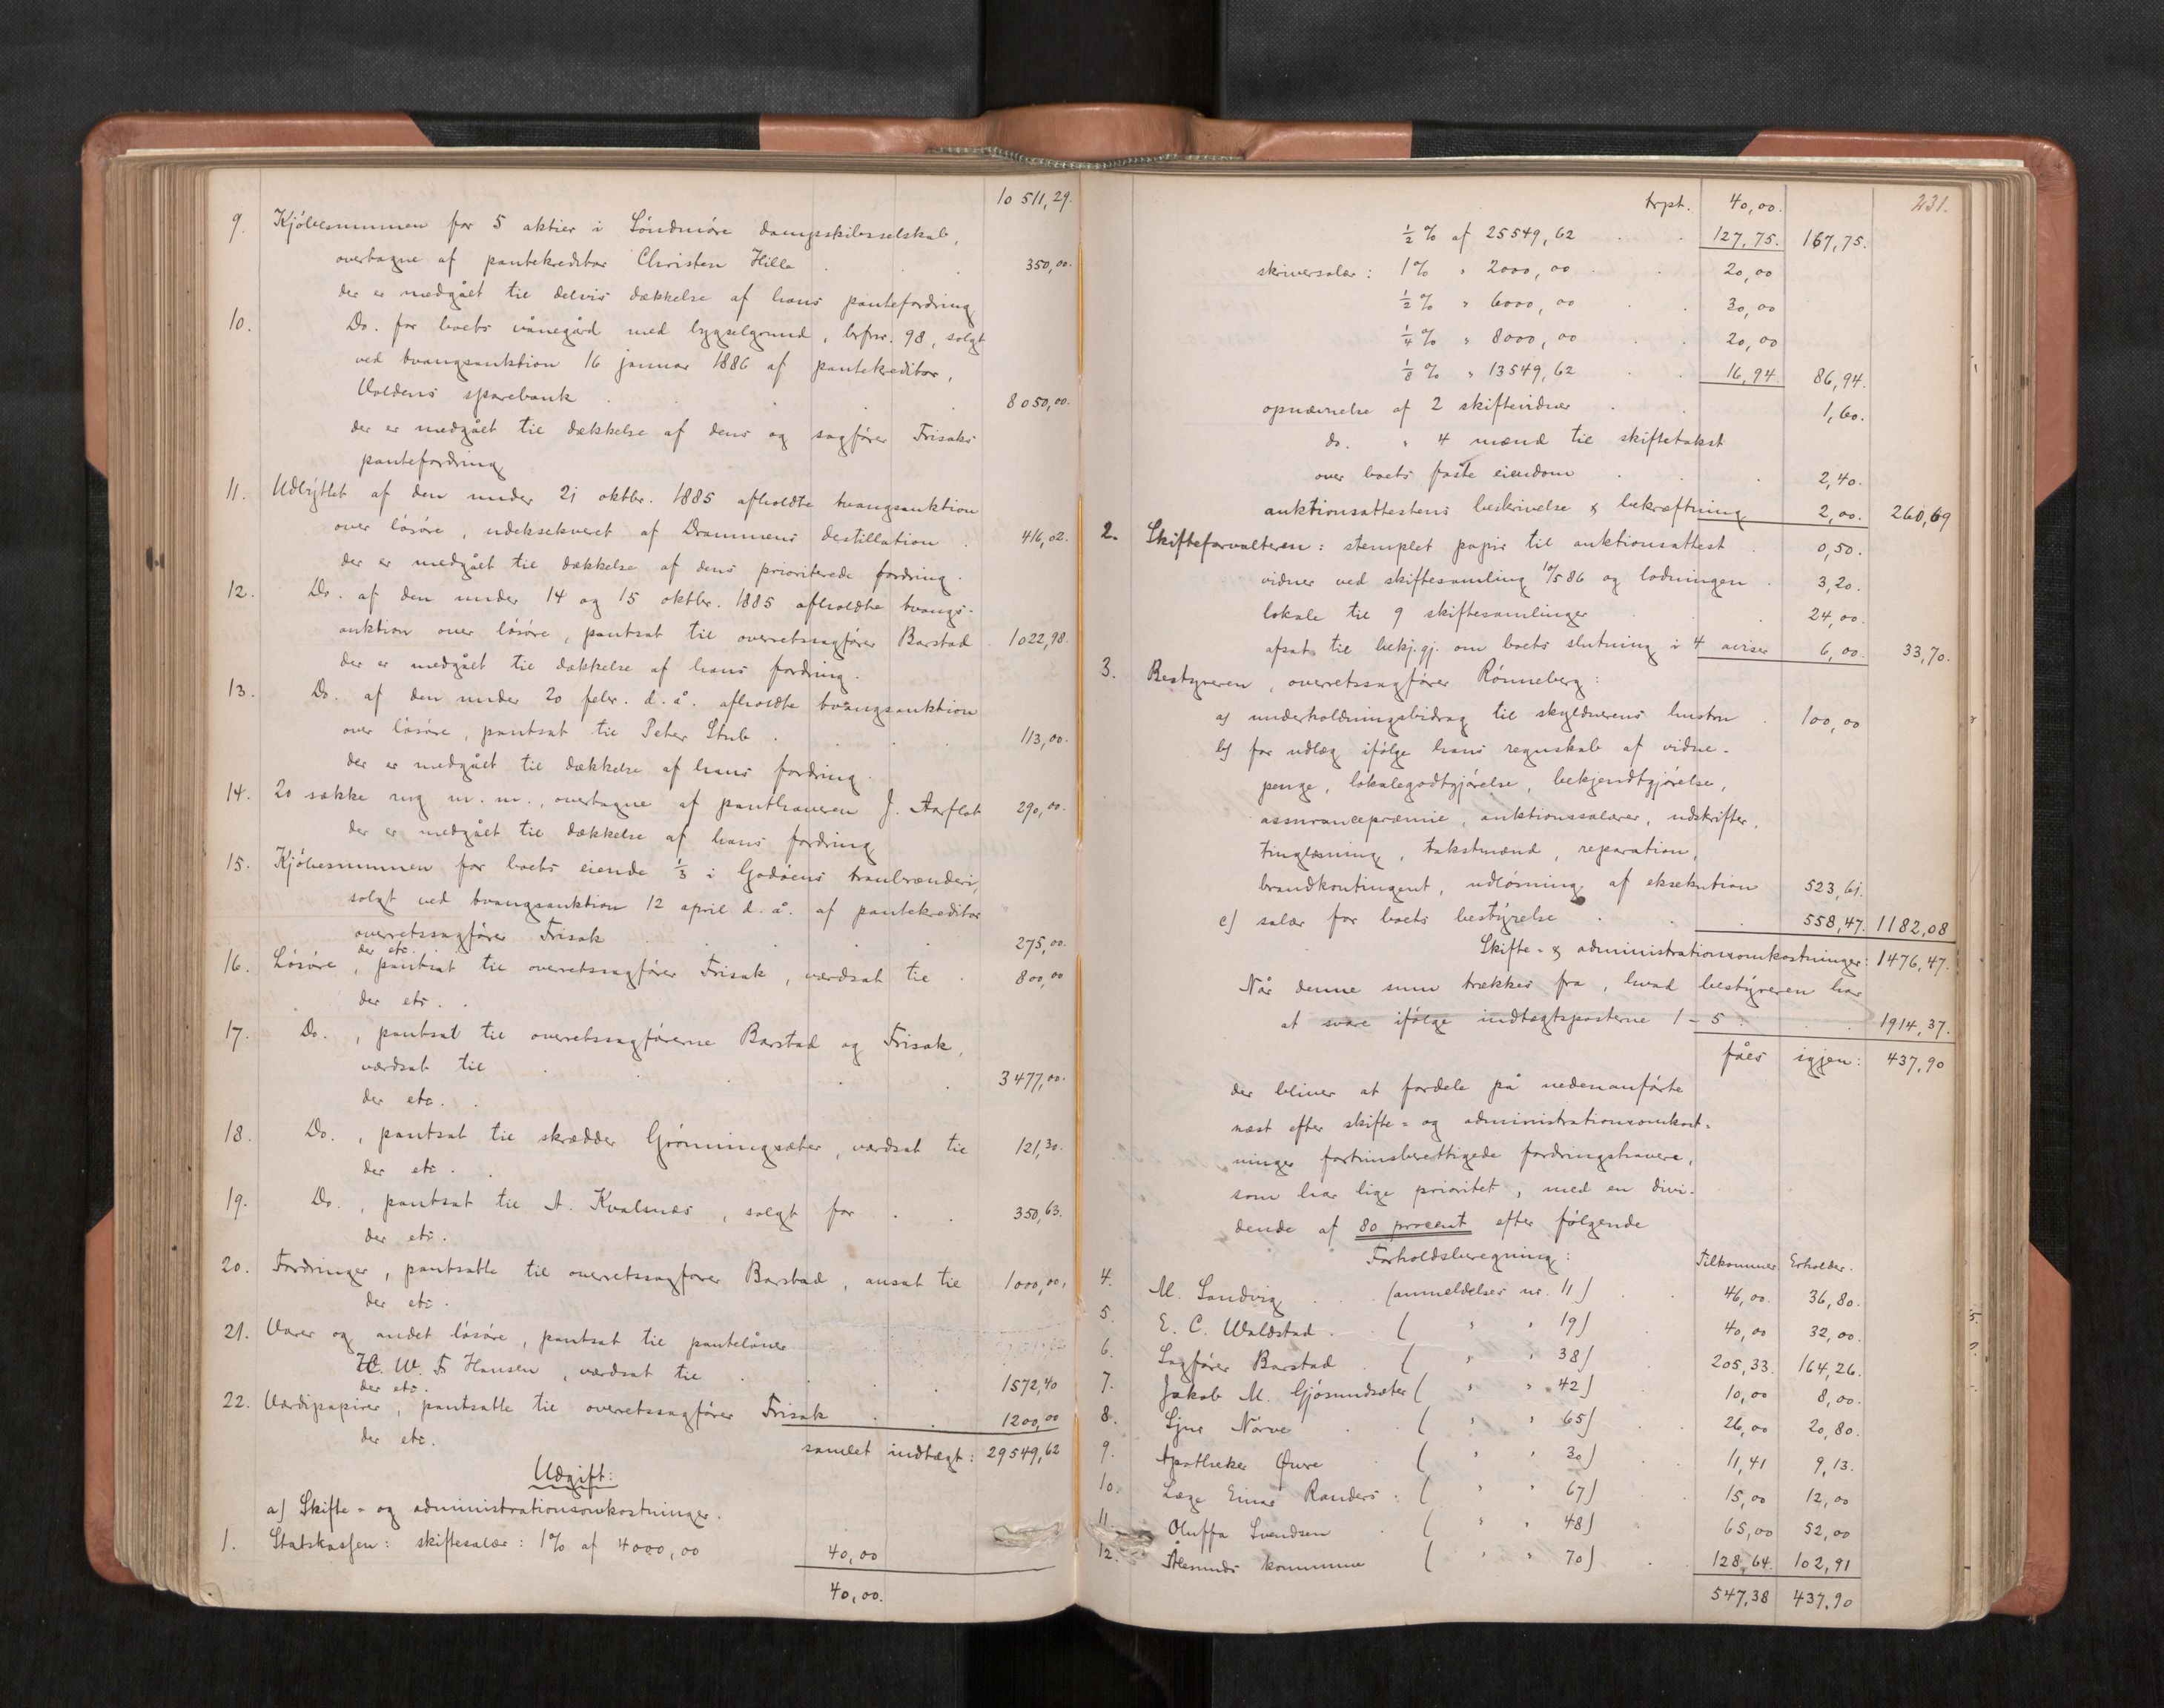 10 511,29.
9. Kjöbesummen for 5 aktier i Söndmöre dampskibsselskab,
overtagne af pantekreditor Christen Hille . . . 350,00.
der er medgået til delvis dækkelse af hans pantefordring
10. Do. for boets vånegård med bygselgrund, brfnr. 98, solgt
ved tvangsauktion 16 januar 1886 af pantekreditor,
Voldens sparebank . . . 8050,00.
der er medgået til dækkelse af dens og sagförer Frisaks
pantefordring
11. Udbyttet af den under 21 oktbr. 1885 afholdte tvangsauktion
over lösöre, udeksekveret af Drammens destillation . 416,02.
der er medgået til dækkelse af dens prioriterede fordring.
12. Do. af den under 14 og 15 oktbr. 1885 afholdte tvangs-
auktion over lösöre, pantsat til overretssagförer Barstad . 1022,98.
der er medgået til dækkelse af hans fordring.
13. Do. af den under 20 febr. d. å. afholdte tvangsauktion
over lösöre, pantsat til Peter Stub . . . 113,00.
der er medgået til dækkelse af hans fordring.
14. 20 sække rug m. m., overtagne af panthaveren J. Aarflot 290,00.
der er medgået til dækkelse af hans fordring
15. Kjöbesummen for boets eiende 1/3 i Godöens tranbrænderi,
solgt ved tvangsauktion 12 april d. å. af pantekreditor
overretssagförer Frisak . . . 275,00.
der etc.
16. Lösöre, pantsat til overretssagförer Frisak, værdsat til . 800,00
der etc. .
17. Do., pantsat til overretssagförerne Barstad og Frisak,
værdsat til . . . 3477,00.
der etc. .
18. Do., pantsat til skrædder Grönningsæter, værdsat til 121,30.
der etc. .
19. Do., pantsat til A. Kvalsnes, solgt for . . 350,63.
der etc.
20. Fordringer, pantsatte til overretssagförer Barstad, ansat til 1000,00,
der etc.
21. Varer og andet lösöre, pantsat til pantelåner
H. W. F. Hansen, værdsat til . . . 1572,40
der etc.
22. Værdipapirer, pantsatte til overretssagförer Frisak . . 1200,00
der etc.
samlet indtægt: 29549,62
Udgift:
a) Skifte- og administrationsomkostninger.
1. Statskassen: skiftesalær: 1% af 4000,00 40,00
40,00.
231.
trpt. 40,00.
1/2 % af 25549,62 . . 127,75. 167,75.
skriversalær: 1% " 2000,00 . . 20,00
1/2 % " 6000,00 . . 30,00
1/4 % " 8000,00 . . 20,00
1/8 % " 13549,62 . . 16,94. 86,94.
opnævnelse af 2 skiftevidner . . 1,60.
do. " 4 mænd til skiftetakst
over boets faste eiendom . . 2,40.
auktionsattestens beskrivelse & bekræftning 2,00. 260,69
2. Skifteforvalteren: stemplet papir til auktionsattest . 0,50.
vidner ved skiftesamling 10/5 86 og lodningen . 3,20.
lokale til 9 skiftesamlinger . . 24,00.
afsat til bekj.gj. om boets slutning i 4 aviser 6,00. 33,70.
3. Bestyreren, overretssagförer Rönneberg:
a) underholdningsbidrag til skyldnerens hustru . 100,00
b) for udlæg ifölge hans regnskab af vidne-
penge, lokalegodtgjörelse, bekjendtgjörelse,
assurancepræmie, auktionssalærer, udskrifter,
tinglæsning, takstmænd, reparation,
brandkontingent, udlösning af eksekution 523,61.
c) salær for boets bestyrelse . . . 558,47. 1182,08
Skifte- & administrationsomkostninger: 1476,47.
Når denne sum trækkes fra, hvad bestyreren har
at svare ifölge indtægtsposterne 1 - 5 . . . 1914,37.
fåes igjen: 437,90
der bliver at fordele på nedenanförte
næst efter skifte- og administrationsomkost-
ninger fortrinsberettigede fordringshavere,
som har lige prioritet, med en divi-
dende af 80 procent efter fölgende
Forholdsberegning: Tilkommer Erholder.
4. M. Sandvig . . (anmeldelses nr. 11) . 46,00. 36,80.
5. E. C. Waldstad . ( " " 19) . 40,00 32,00.
6. Sagförer Barstad . ( " " 38) . 205,33. 164,26.
7. Jakob M. Gjösundsæter ( " " 42) 10,00 8,00.
8. Sjur Nörve . ( " " 65) . 26,00 20,80.
9. Apotheker Øwre ( " " 30) . 11,41 9,13.
10. Læge Einar Randers . ( " " 67) 15,00 12,00
11. Oluffa Svendsen . ( " " 48) 65,00 52,00
12. Ålesunds kommune ( " " 70) . 128,64. 102,91
547,38 437,90